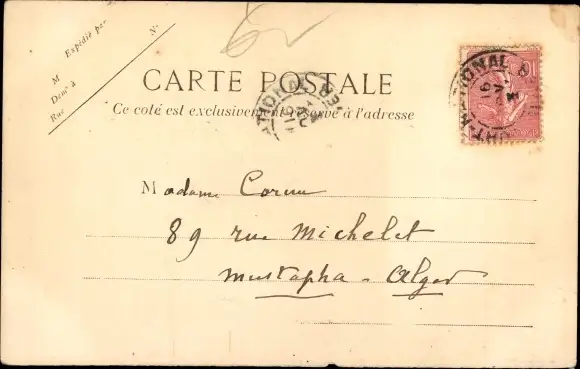 Expédié par
M
Dem.t à
Rue
N.
CARTE POSTALE
Ce côté est exclusivement réservé à l'adresse
Madame
89 rue Michelet
Mustapha - Alger
10
FORT-NATIONAL
16